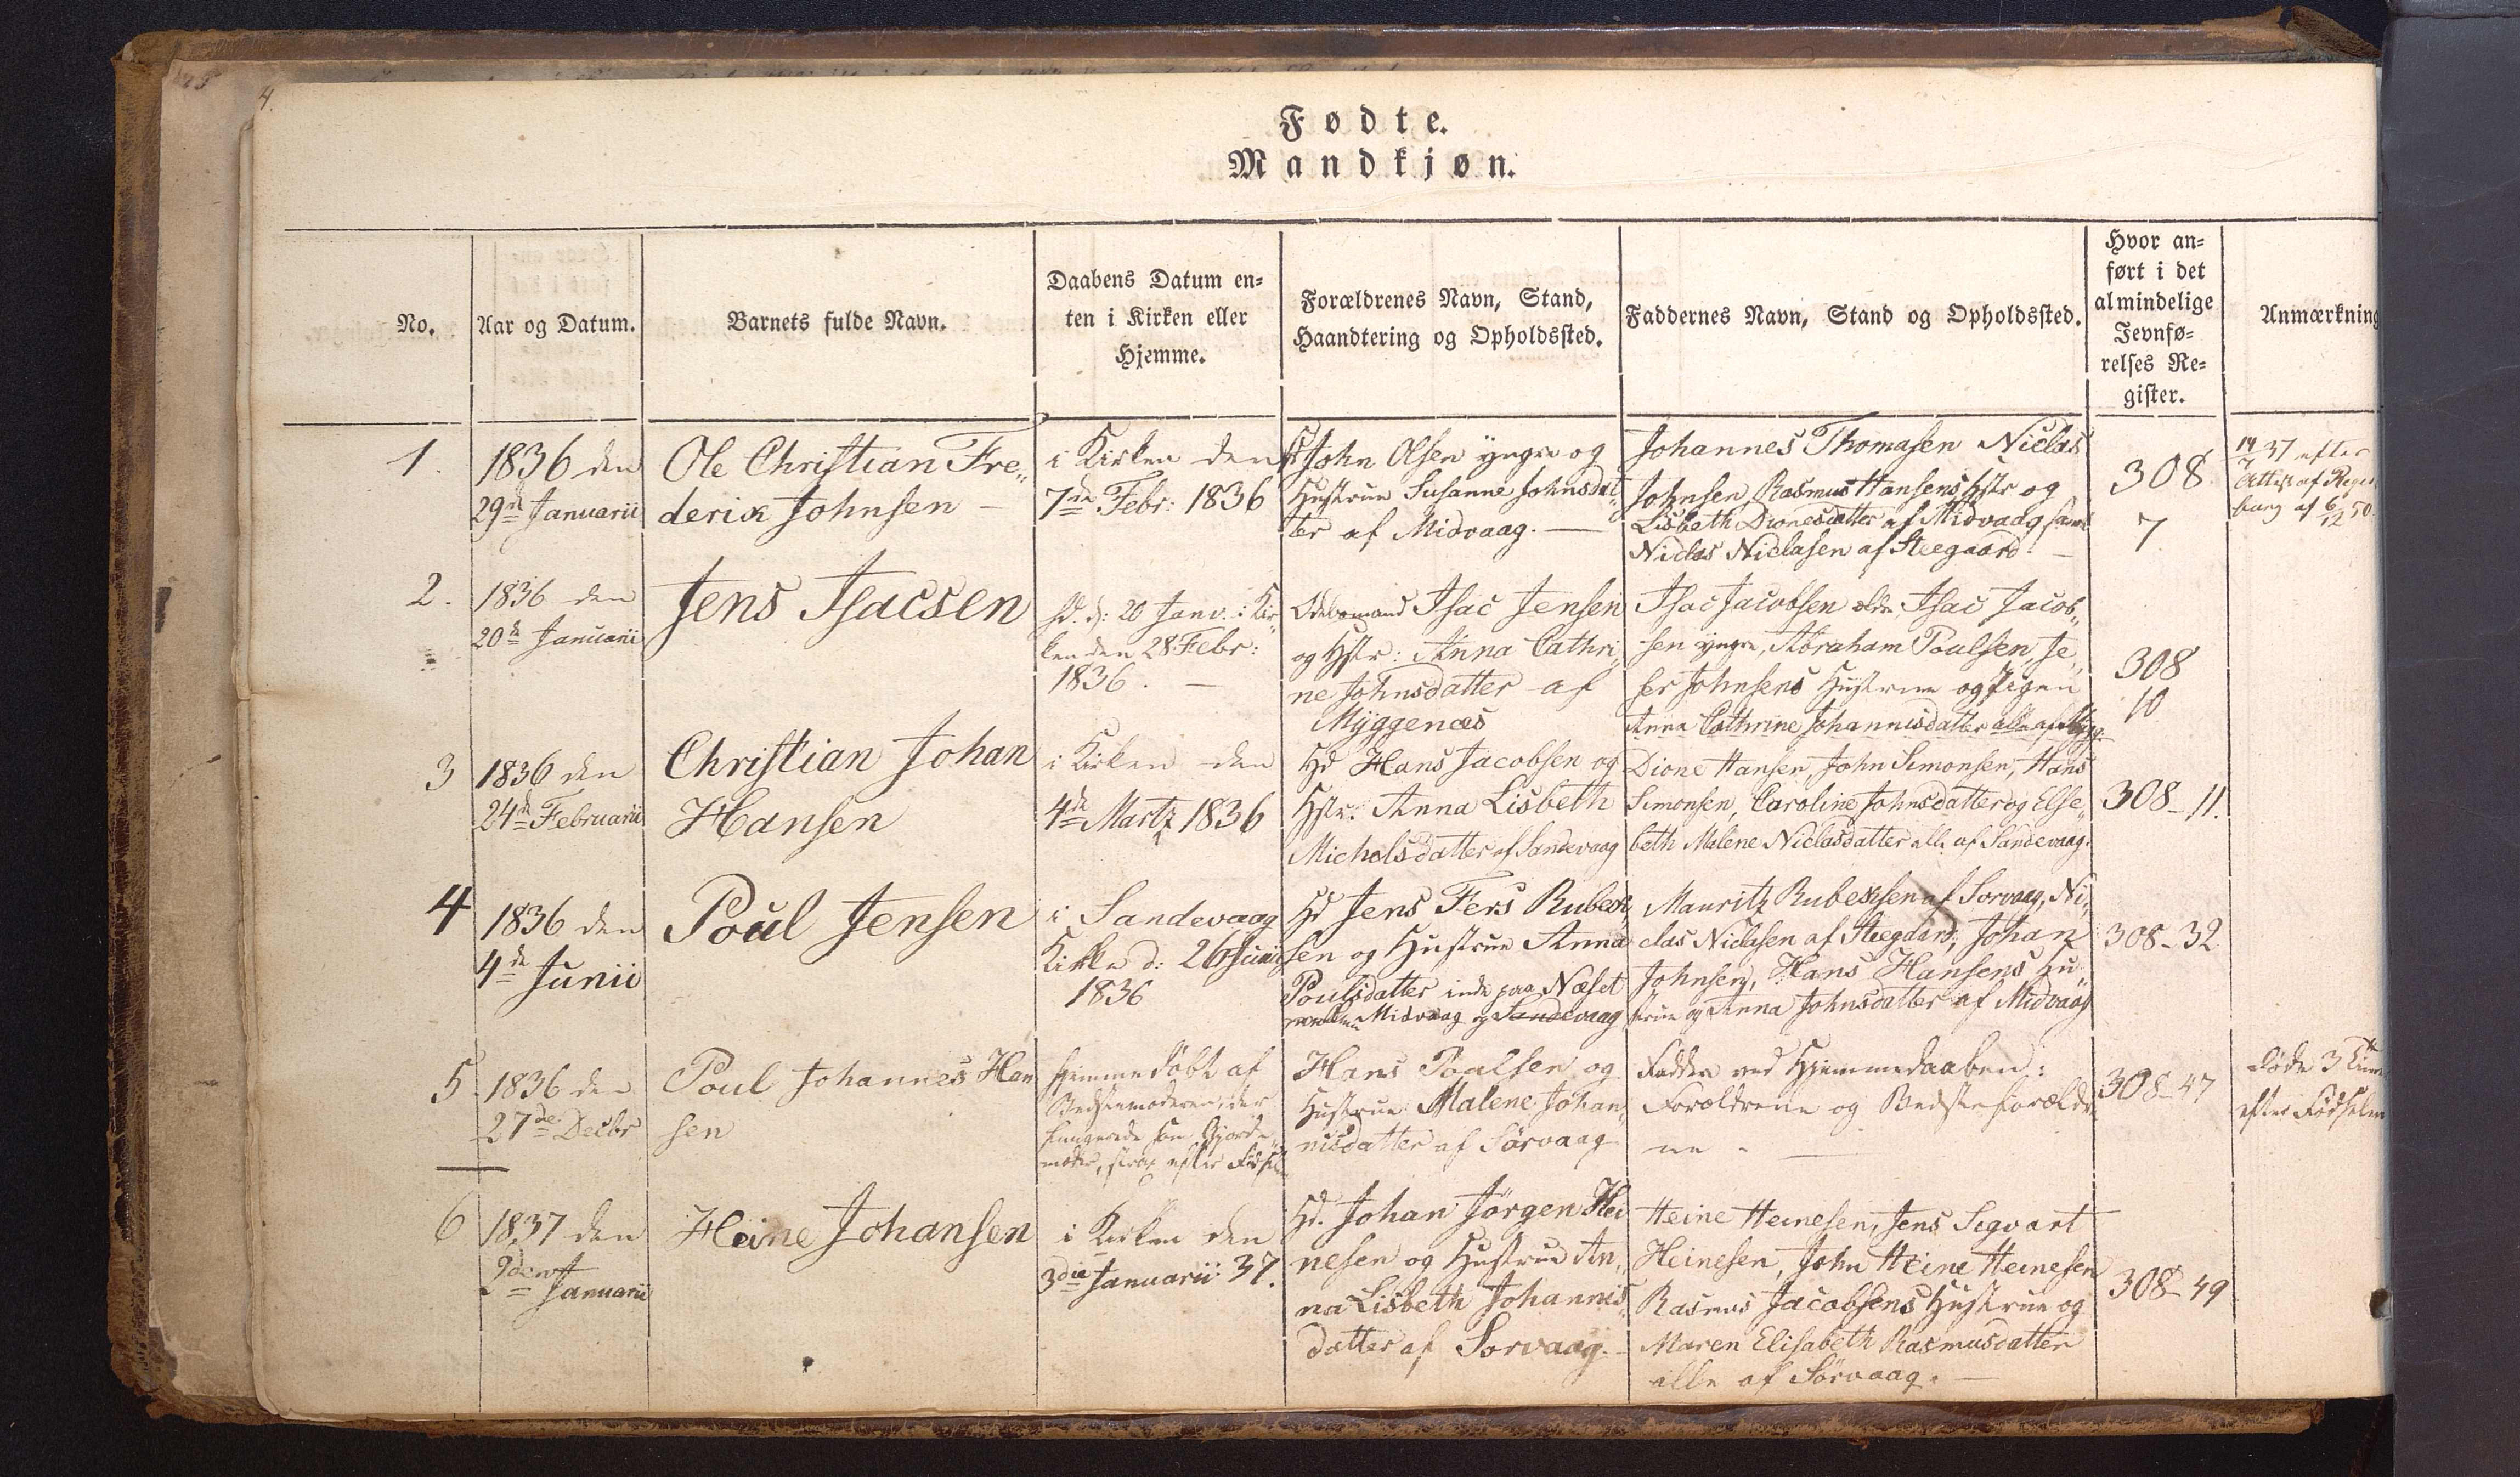 4.
Fødte.
Mandkjøn.
No.
Aar og Datum.
Barnets fulde Navn.
Daabens Datum en-
ten i Kirken eller
Hjemme.
Forældrenes Navn, Stand,
Haandtering og Opholdssted.
Faddernes Navn, Stand og Opholdssted.
Hvor an-
ført i det
almindelige
Jevnfø-
relses Re-
gister.
Anmærkning
1.
1836 den
29de Januarii
Ole Christian Fre„
derik Johnsen –
i Kirken den
7de Febr: 1836
John Olsen yngre og
Hustrue Susanne Johnsdat„
ter af Midvaag. —
Johannes Thomasen Niclas
Johnsen, Rasmus Hansens Hstr og
Lisbeth Dionesdatter af Midvaag samt
Niclas Niclasen af Steegaard. —
308
7
37 efter
Attest af
borg af 6/12 50.
2.
1836 den
20de Januarii
Jens Isacsen
Hd. d: 20 Janv. i Kir„
ken den 28 Febr:
1836. —
Odelsmand Isac Jensen
og Hstr: Anna Cathri„
ne Johnsdatter af
Myggenæs
Isac Jacobsen ældre, Isac Jacob„
sen yngre, Abraham Poulsen, Je„
ser Johnsens Hustrue og Pigen
Anna Cathrine Johannisdatter alle af Mygg.
308
10
3
1836 den
24de Februarii
Christian Johan
Hansen
i Kirken den
4de Martz 1836
Hd Hans Jacobsen og
Hstr. Anna Lisbeth
Michelsdatter af Sandevaag
Dione Hansen, John Simonsen, Hans
Simonsen, Caroline Johnsdatter og Else„
beth Malene Niclasdatter alle af Sandevaag.
308–11.
4
1836 den
4de Junii
Poul Jensen
i Sandevaag
Kirke d: 26 Junii
1836
Hd Jens Fers Rubek„
sen og Hustrue Anna
Poulsdatter inde paa Næset
mellem Midvaag og Sandevaag
Mauritz Rubeksen af Sorvaag, Ni„
clas Niclasen af Steegaard, Johan
Johnsen, Hans Hansens Hu„
strue og Anna Johnsdatter af Midvaag
308–32
5.
1836 den
27de Decbr
Poul Johannes Han
sen
Hjemmedøbt af
Bedstemoderen, der
fungerede som Gjorde„
moder, strax efter Fødselen
Hans Poulsen og
Hustrue Malene Johan„
nisdatter af Sørvaag
Faddere ved Hjemmedaaben:
Forældrene og Bedsteforældre
ne. —
308–47
døde 3 Timer
efter Fødselen
6
1837 den
Januarii
Heine Johansen
i Kirken den
3die Januarii 37.
Hd. Johan Jörgen Hei
nesen og Hustrue An„
na Lisbeth Johannis„
datter af Sorvaag. –
Heine Heinesen, Jens Sigvart
Heinesen, John Heine Heinesen
Rasmus Jacobsens Hustrue og
Maren Elisabeth Rasmusdatter
alle af Sörvaag. —
308–49